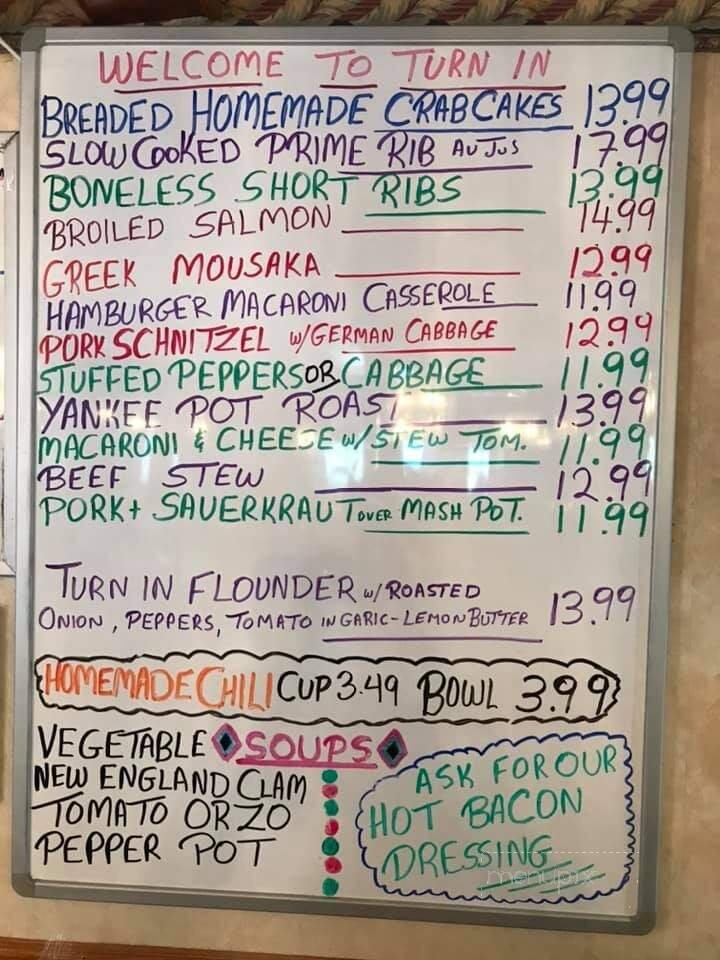 WELCOME TO TURN IN
BREADED HOMEMADE CRABCAKES 13.99
SLOW COOKED PRIME RIB AU JUS 17.99
BONELESS SHORT RIBS 13.99
BROILED SALMON 14.99
GREEK MOUSAKA 12.99
HAMBURGER MACARONI CASSEROLE 11.99
PORK SCHNITZEL W/GERMAN CABBAGE 12.99
STUFFED PEPPERS OR CABBAGE 11.99
YANKEE POT ROAST 13.99
MACARONI & CHEESE W/STEW TOM. 11.99
BEEF STEW 12.99
PORK + SAUERKRAUT OVER MASH POT. 11.99
TURN IN FLOUNDER W/ROASTED
ONION, PEPPERS, TOMATO IN GARIC-LEMON BUTTER 13.99
HOMEMADE CHILI CUP 3.49 BOWL 3.99
VEGETABLE SOUPS
NEW ENGLAND CLAM
TOMATO ORZO
PEPPER POT
ASK FOR OUR
HOT BACON
DRESSING
menupix